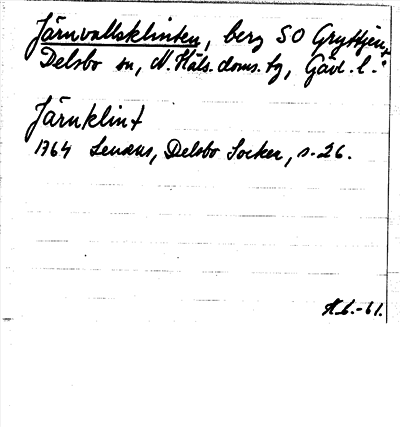 Järnvallsklinten, berg SO Gryttjen,
Delsbo sn, N. Häls. doms. tg, Gävl. l.
Järnklint
1764 Lenæus, Delsbo Socken, s. 26.
H.L.-61.